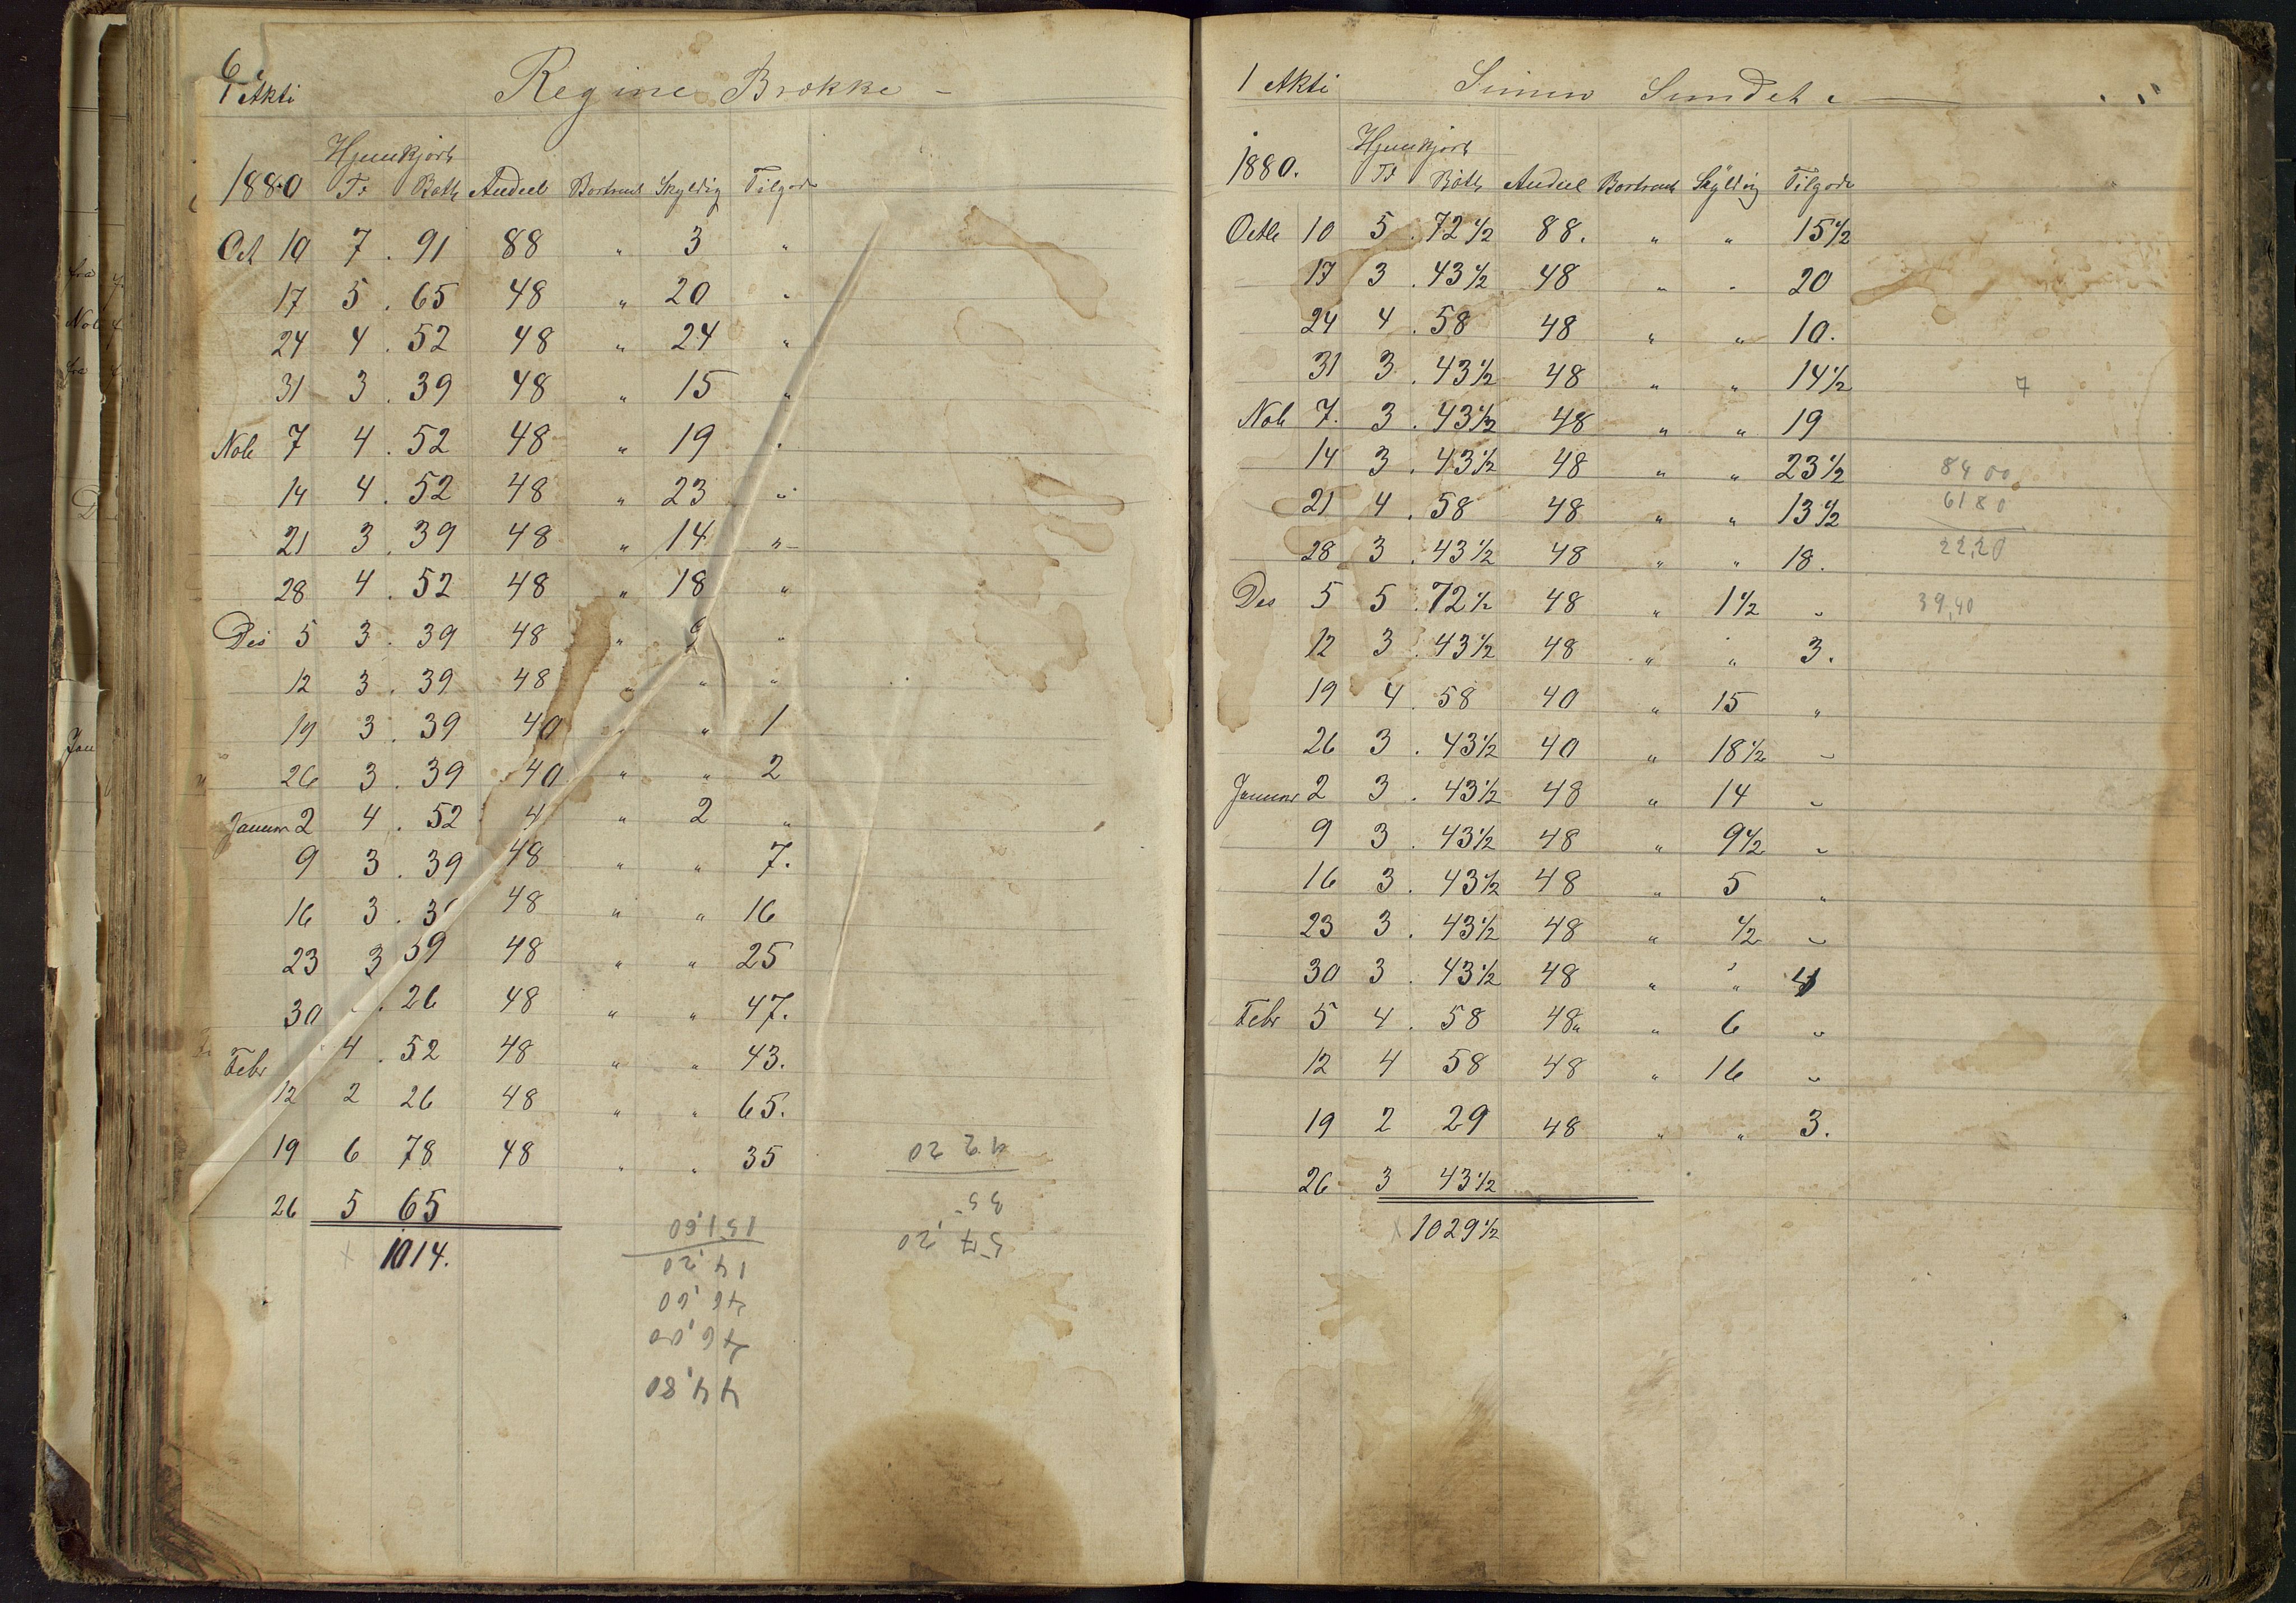 6
1 Akti Regine Brokke –
Hjemkjørt
1880 Tr Bøtte Andeel Bortsent Skyldig Tilgode
Oct 10 7 . 91 88 " 3 "
17 5 . 65 48 " 20 "
24 4 . 52 48 " 24 "
31 3 . 39 48 " 15 "
Nob 7 4 . 52 48 " 19 "
14 4 . 52 48 " 23 "
21 3 . 39 48 " 14 "
28 4 . 52 48 " 18 "
Des 5 3 . 39 48 " 9 "
12 3 . 39 48 " " "
19 3 . 39 40 " " 1
26 3 . 39 40 " " 2
Januar 2 4 . 52 4 " 2 "
9 3 . 39 48 " " 7.
16 3 . 3 48 " " 16
23 3 39 48 " " 25
30 . 26 48 " " 47.
Febr 4 . 52 48 " " 43.
12 2 26 48 " " 65.
19 6 78 48 " " 35
26 5 65
x 1014.
57,20
35
42 20
44,80
76,00
76,60
14,20
151,60
1 Akti Simen Sundet.
Hjemkjørt
1880. Tr Bøtte Andeel Bortsent Skyldig Tilgode
Octb 10 5 . 72 1/2 88. " " 15 1/2
17 3 . 43 1/2 48 " " 20
24 4 . 58 48 " " 10.
31 3 . 43 1/2 48 " " 14 1/2 7
Nob 7. 3 . 43 1/2 48 " " 19
14 3 . 43 1/2 48 " " 23 1/2 84 00
21 4 . 58 48 " " 13 1/2 61 80
28 3 . 43 1/2 48 " " 18. 22,20
Des 5 5 . 72 1/2 48 " 1 1/2 " 39,40
12 3 . 43 1/2 48 " " 3.
19 4 . 58 40 " 15 "
26 3 . 43 1/2 40 " 18 1/2 "
Januar 2 3 . 43 1/2 48 " 14 "
9 3 . 43 1/2 48 " 9 1/2 "
16 3 . 43 1/2 48 " 5 "
23 3 . 43 1/2 48 " 1/2 "
30 3 . 43 1/2 48 " " 4
Febr 5 4 . 58 48 " 6 "
12 4 58 48 " 16 "
19 2 29 48 " " 3.
26 3 43 1/2
x 1029 1/2
Nob
Jan